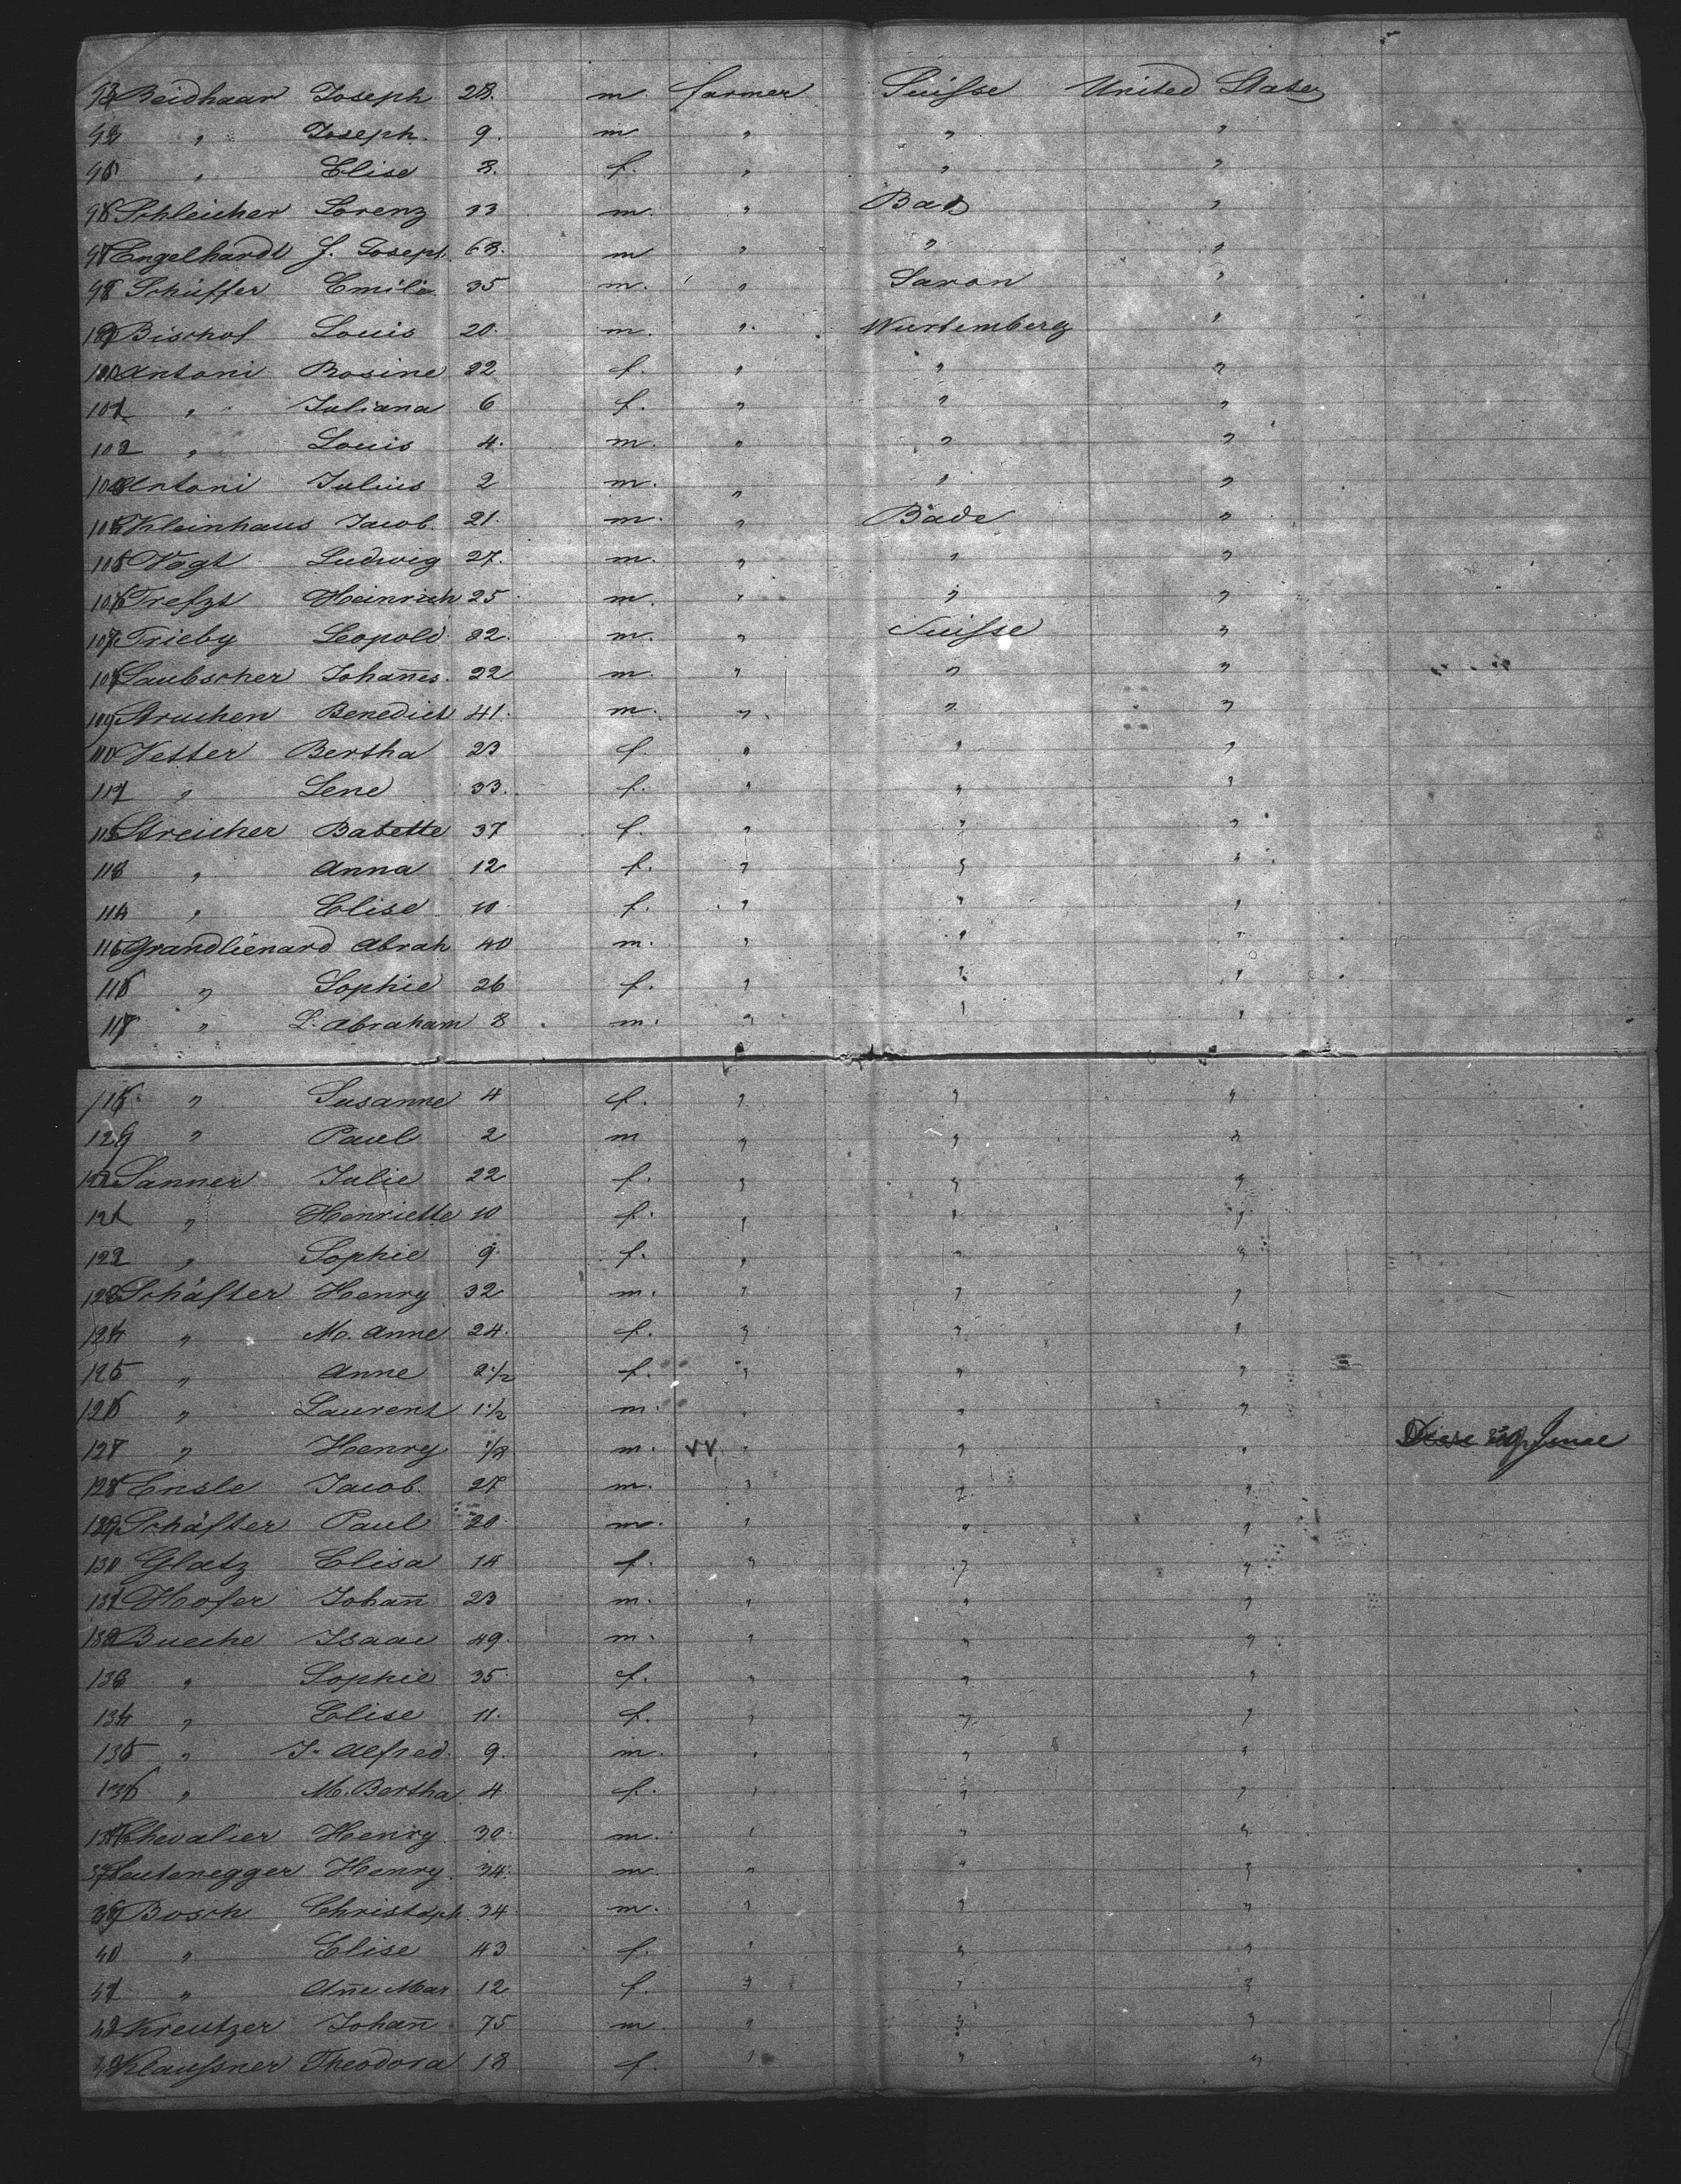 93 Beidhaar Joseph 28. m. farmer Suisse United States
94 " Joseph. 9. m " " "
95 " Elise 8. f. " " "
96 Schleicher Lorenz 33 m. " Bad "
97 Engelhardt J. Joseph. 63. m " " "
98 Schüffer Emil 35 m. " Saxon "
99 Bischof Louis 20. m. " Wurtemberg "
100 Antoni Rosine 22 f. " " "
101 " Juliana 6 f. " " "
102 " Louis 4. m. " " "
103 Antoni Julius 2 m. " " "
104 Kleinhaus Jacob. 21. m. " Bade "
105 Vogt Ludwig 27. m. " " "
106 Trefzt Heinrich 25 m. " " "
107 Trieby Leopold 32. m. " Suisse "
108 Laubscher Johan̄es. 22 m. " " "
109 Struchen Benedict 41. m. " " "
110 Vetter Bertha 23 f. " " "
111 " Lene 33. f. " " "
112 Streicher Babette 37 f. " " "
113 " Anna 12 f. " " "
114 " Elise 10. f. " " "
115 Grandlienard Abrah 40 m. " " "
116 " Sophie 26 f. " " "
117 " L. Abraham 8 m. " " "
118 " Susanne 4 f. " " "
119 " Paul 2 m " " "
120 Sanner Julie 22 f. " " "
121 " Henriette 10 f. " " "
122 " Sophie 9. f. " " "
123 Schäfter Henry 32 m. " " "
124 " M. Anne 24. f. " " "
125 " Anne 2 1/2 f. " " "
126 " Laurent 1 1/2 m. " " "
127 " Henry m. " " "
128 Ensle Jacob. 27 m. " " "
129 Schäfter Paul 20. m. " " "
130 Glatz Elisa 14 f. " " "
131 Hofer Johan̄ 23 m. " " "
132 Bueche Isaac 49. m. " " "
133 " Sophie 35. f. " " "
134 " Elise 11. f. " " "
135 " J. Alfred. 9. m. " " "
136 " M. Bertha 4. f. " " "
137 Chevalier Henry 30. m. " " "
38 Leutenegger Henry. 34. m. " " "
39 Bosch Christoph. 34 m. " " "
40 " Elise 43 f. " " "
41 " An̄e Mar 12 f. " " "
42 Kreutzer Johan̄ 75 m. " " "
43 Klaussner Theodora 18 f. " " "